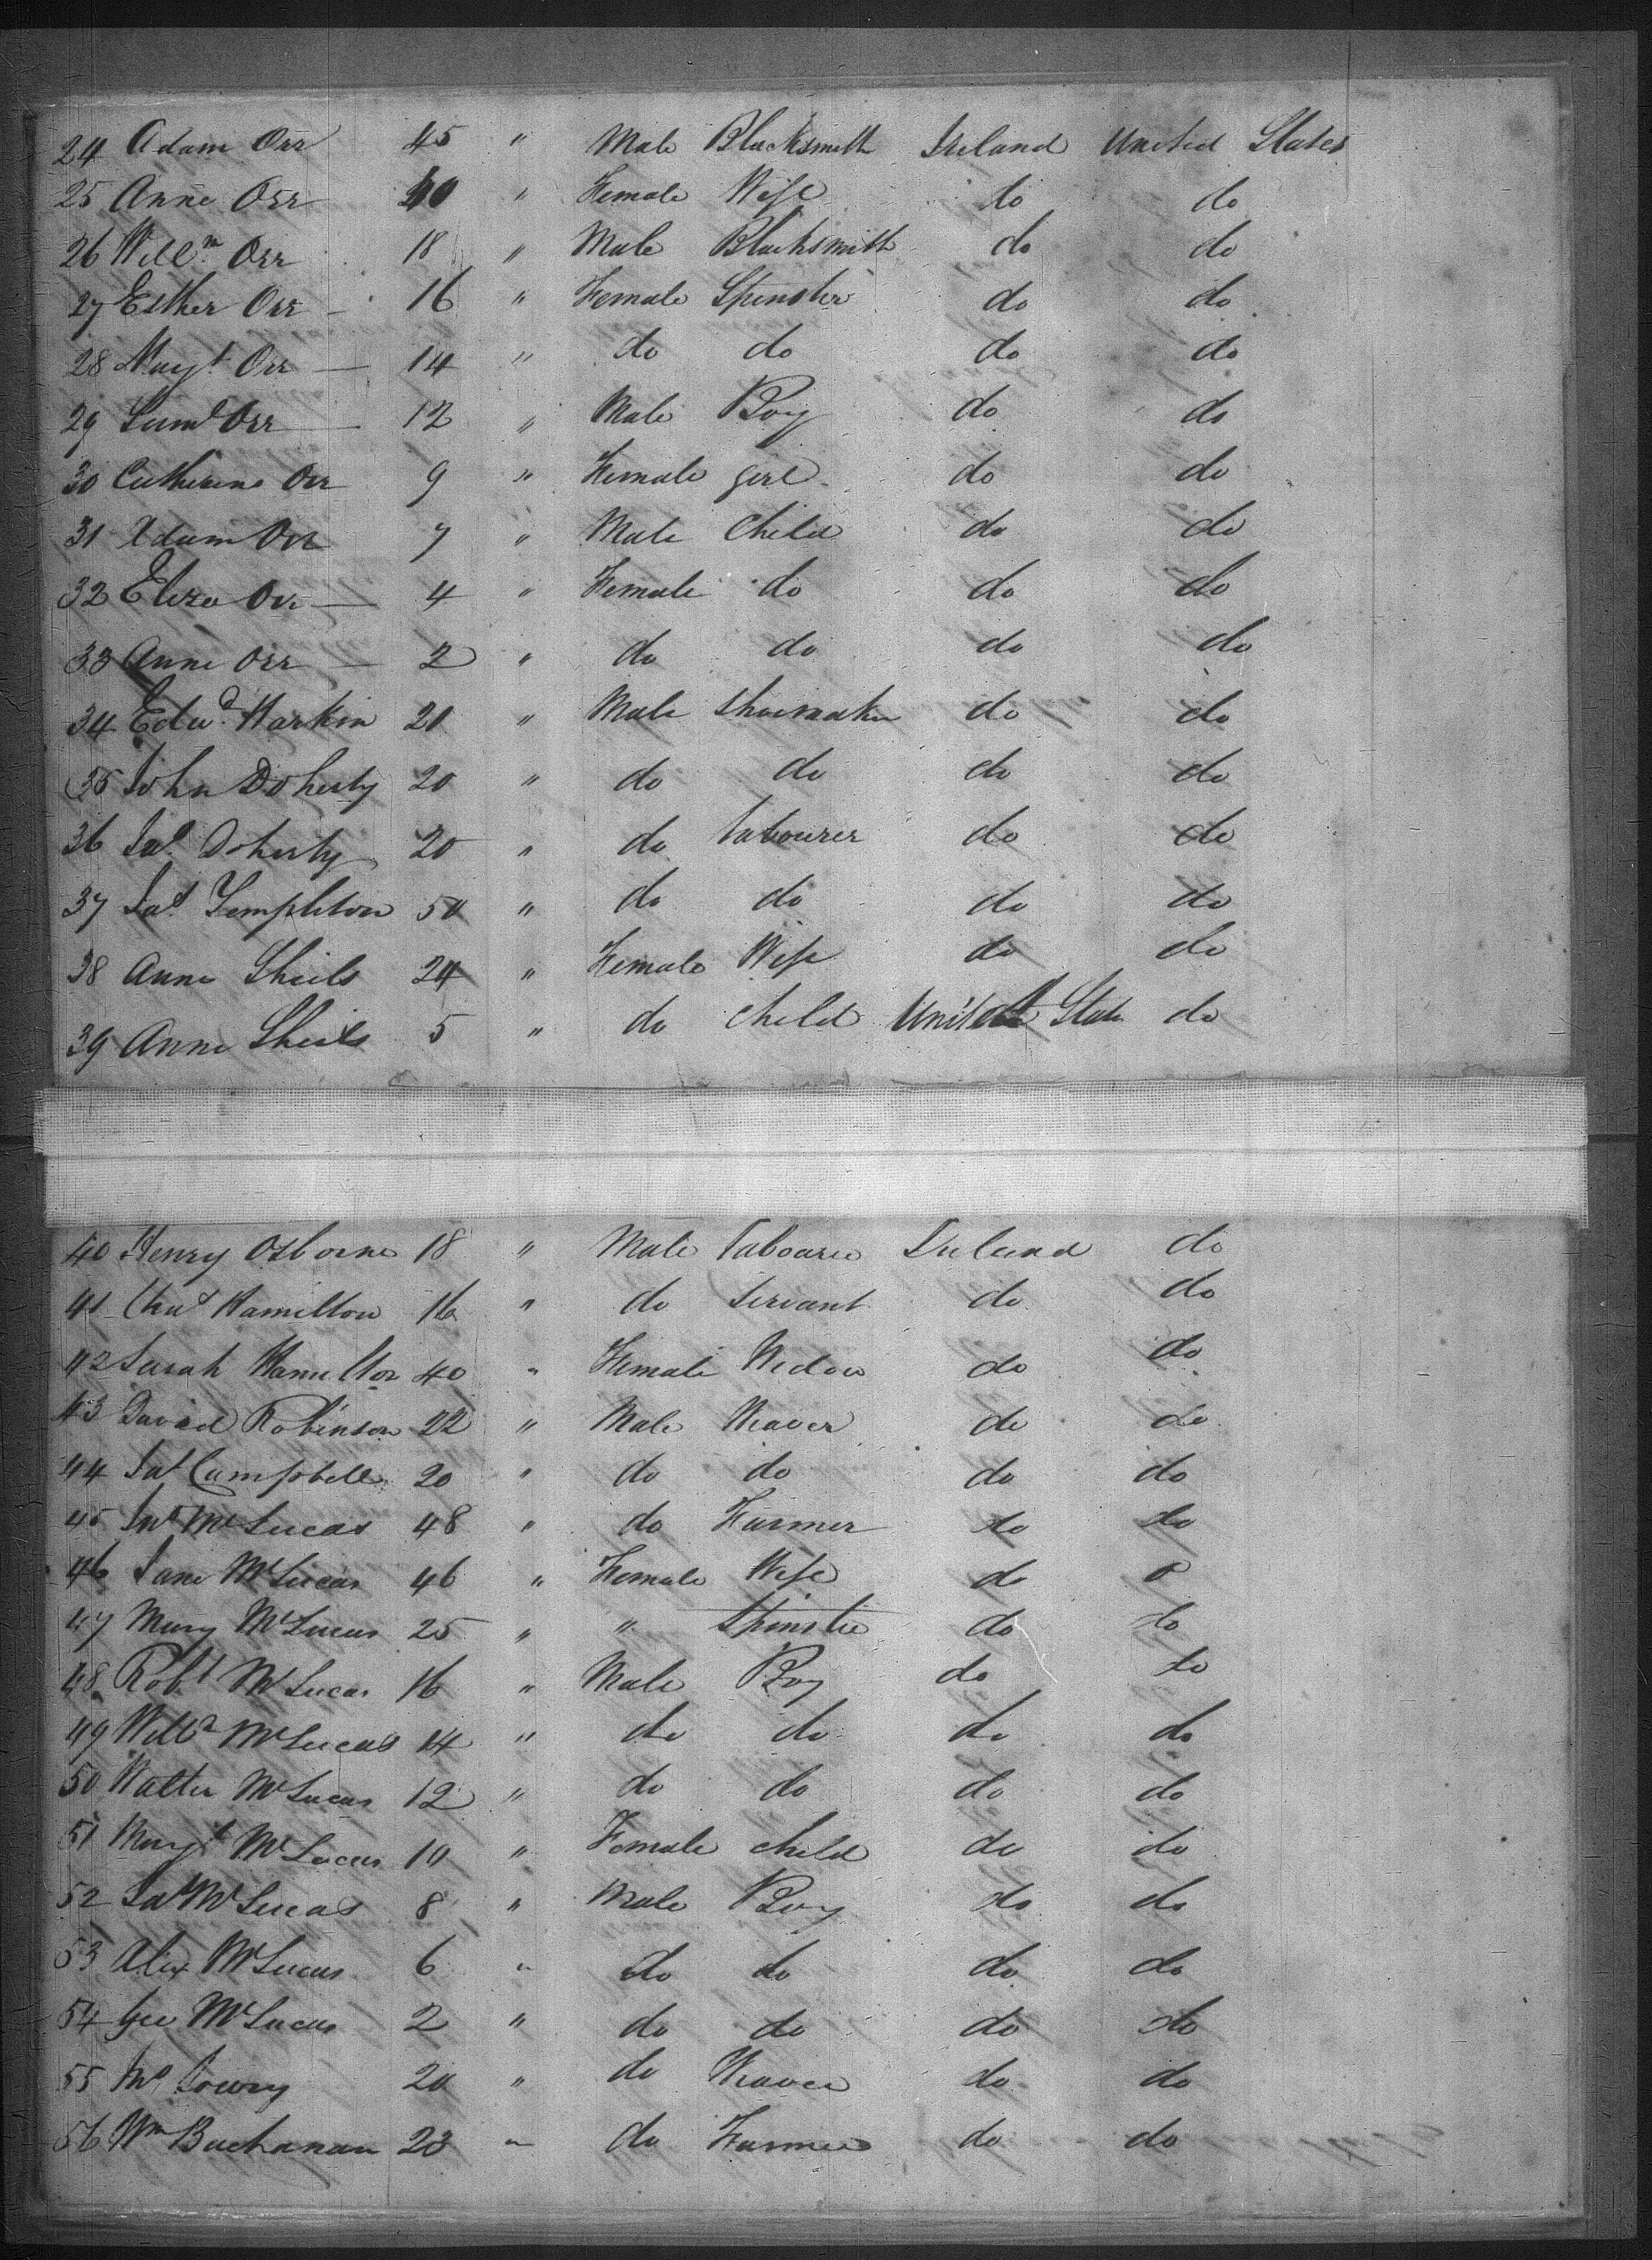 24 Adam Orr 45 " Male Blacksmith Ireland United States
25 Anne Orr 40 " Female Wife do do
26 Willm Orr 18 " Male Blacksmith do do
27 Esther Orr - 16 " Female Spinster do do
28 Margt Orr — 14 " do do do do
29 Saml Orr — 12 " Male Boy do do
30 Catherine Orr 9 " Female girl do do
31 Adam Orr 7 " Male Child do do
32 Eliza Orr — 4 " Female do do do
33 Anne Orr — 2 " do do do do
34 Edwd Harkin 20 " Male Shoemaker do do
35 John Doherty 20 " do do do do
36 Jas Doherty 20 " do Labourer do do
37 Jas Templeton 50 " do do do do
38 Anne Sheils 24 " Female Wife do do
39 Anne Sheils 5 " do Child United State do
40 Henry Osborne 18 " Male Labourer Ireland do
41 Chas Hamilton 16 " do Servant do do
42 Sarah Hamilton 40 " Female Widow do do
43 David Robinson 22 " Male Weaver do do
44 Jas Campbell 20 " do do do do
45 Jno McLucas 48 " do Farmer do do
46 Jane McLucas 46 " Female Wife do
47 Mary McLucas 25 " " Spinster do do
48 Robt McLucas 16 " Male Boy do do
49 Willm McLucas 14 " do do do do
50 Walter McLucas 12 " do do do do
51 Margt McLucas 10 " Female child do do
52 Jas McLucas 8 " Male Boy do do
53 Alex McLucas 6 " do do do do
54 Geo McLucas 2 " do do do do
55 Lowry 20 " do Weaver do do
56 Wm Buchanan 23 " do Farmer do do